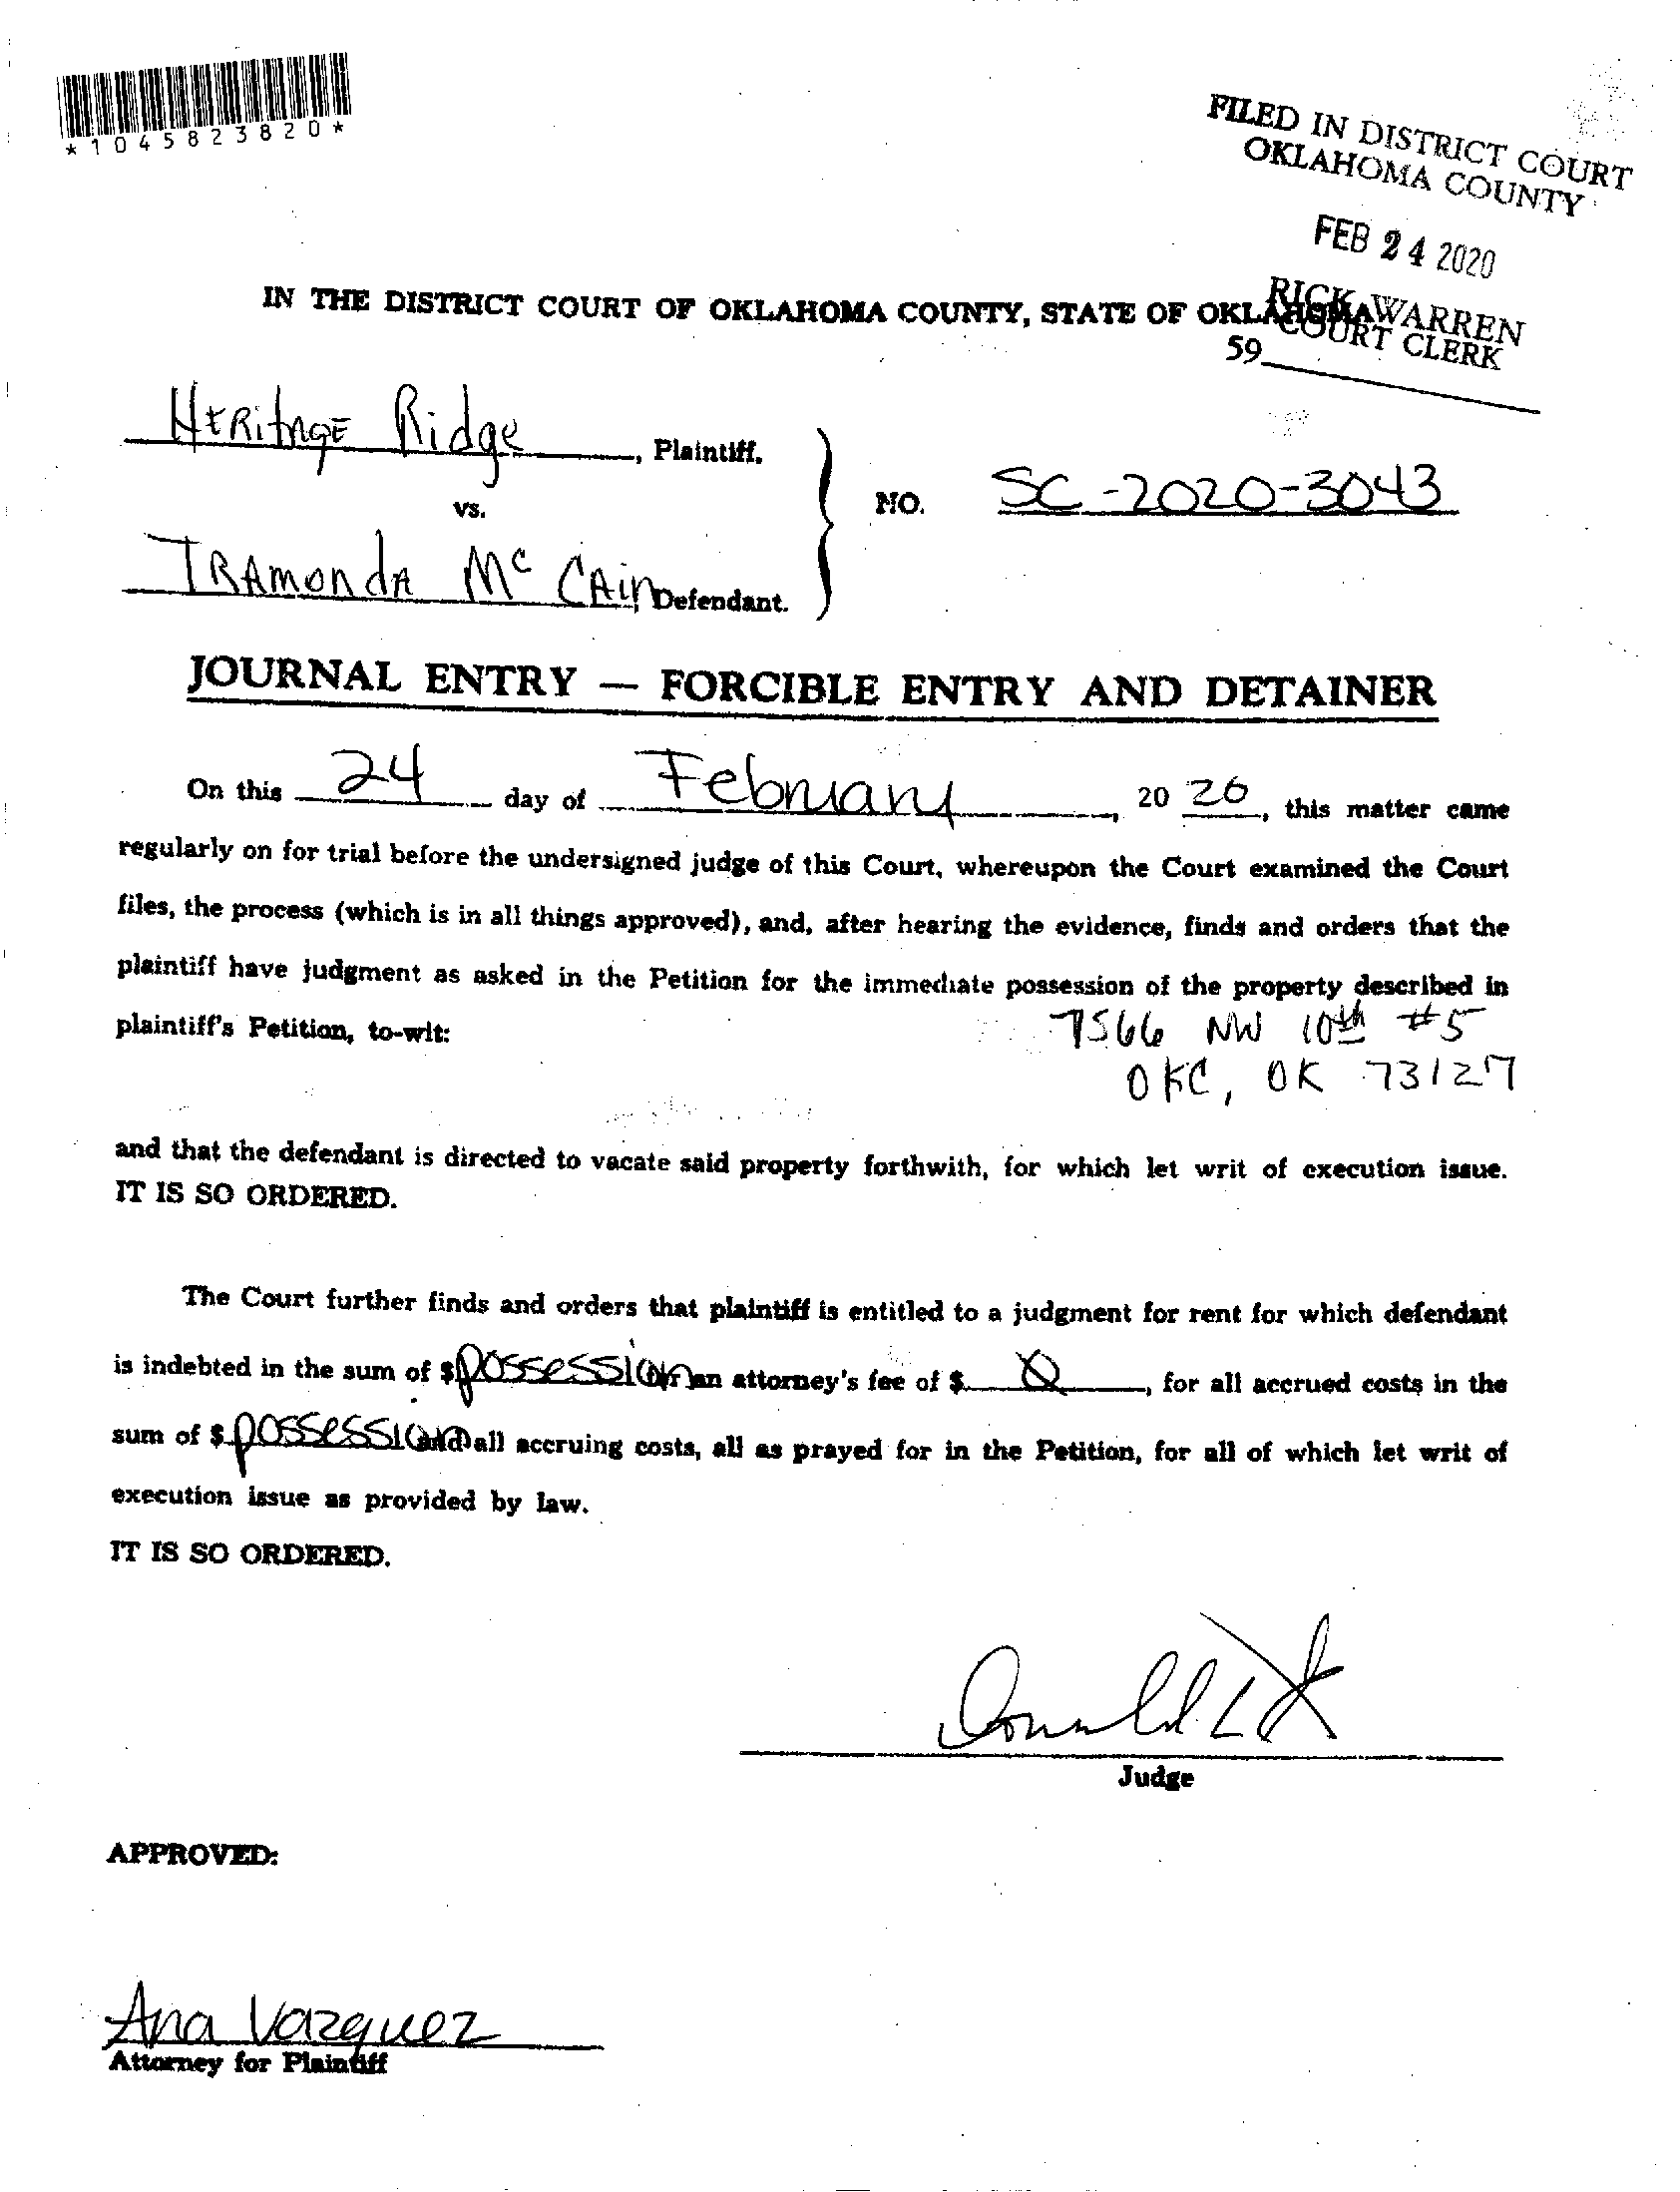 *1045823820*
FILED IN DISTRICT COURT
OKLAHOMA COUNTY
FEB 24 2020
RICK WARREN
COURT CLERK
59
IN THE DISTRICT COURT OF OKLAHOMA COUNTY, STATE OF OKLAHOMA
Heritage Ridge, Plaintiff,
vs.
NO. SC-2020-3043
Tramonda McCain Defendant.
JOURNAL ENTRY — FORCIBLE ENTRY AND DETAINER
On this 24 day of February, 20 20, this matter came
regularly on for trial before the undersigned judge of this Court, whereupon the Court examined the Court
files, the process (which is in all things approved), and, after hearing the evidence, finds and orders that the
plaintiff have judgment as asked in the Petition for the immediate possession of the property described in
plaintiff's Petition, to-wit: 7566 NW 10th #5
OKC, OK 73127
and that the defendant is directed to vacate said property forthwith, for which let writ of execution issue.
IT IS SO ORDERED.
The Court further finds and orders that plaintiff is entitled to a judgment for rent for which defendant
is indebted in the sum of $ possession for an attorney's fee of $ 0, for all accrued costs in the
sum of $ possession and all accruing costs, all as prayed for in the Petition, for all of which let writ of
execution issue as provided by law.
IT IS SO ORDERED.
Donald L
Judge
APPROVED:
Ana Vazquez
Attorney for Plaintiff